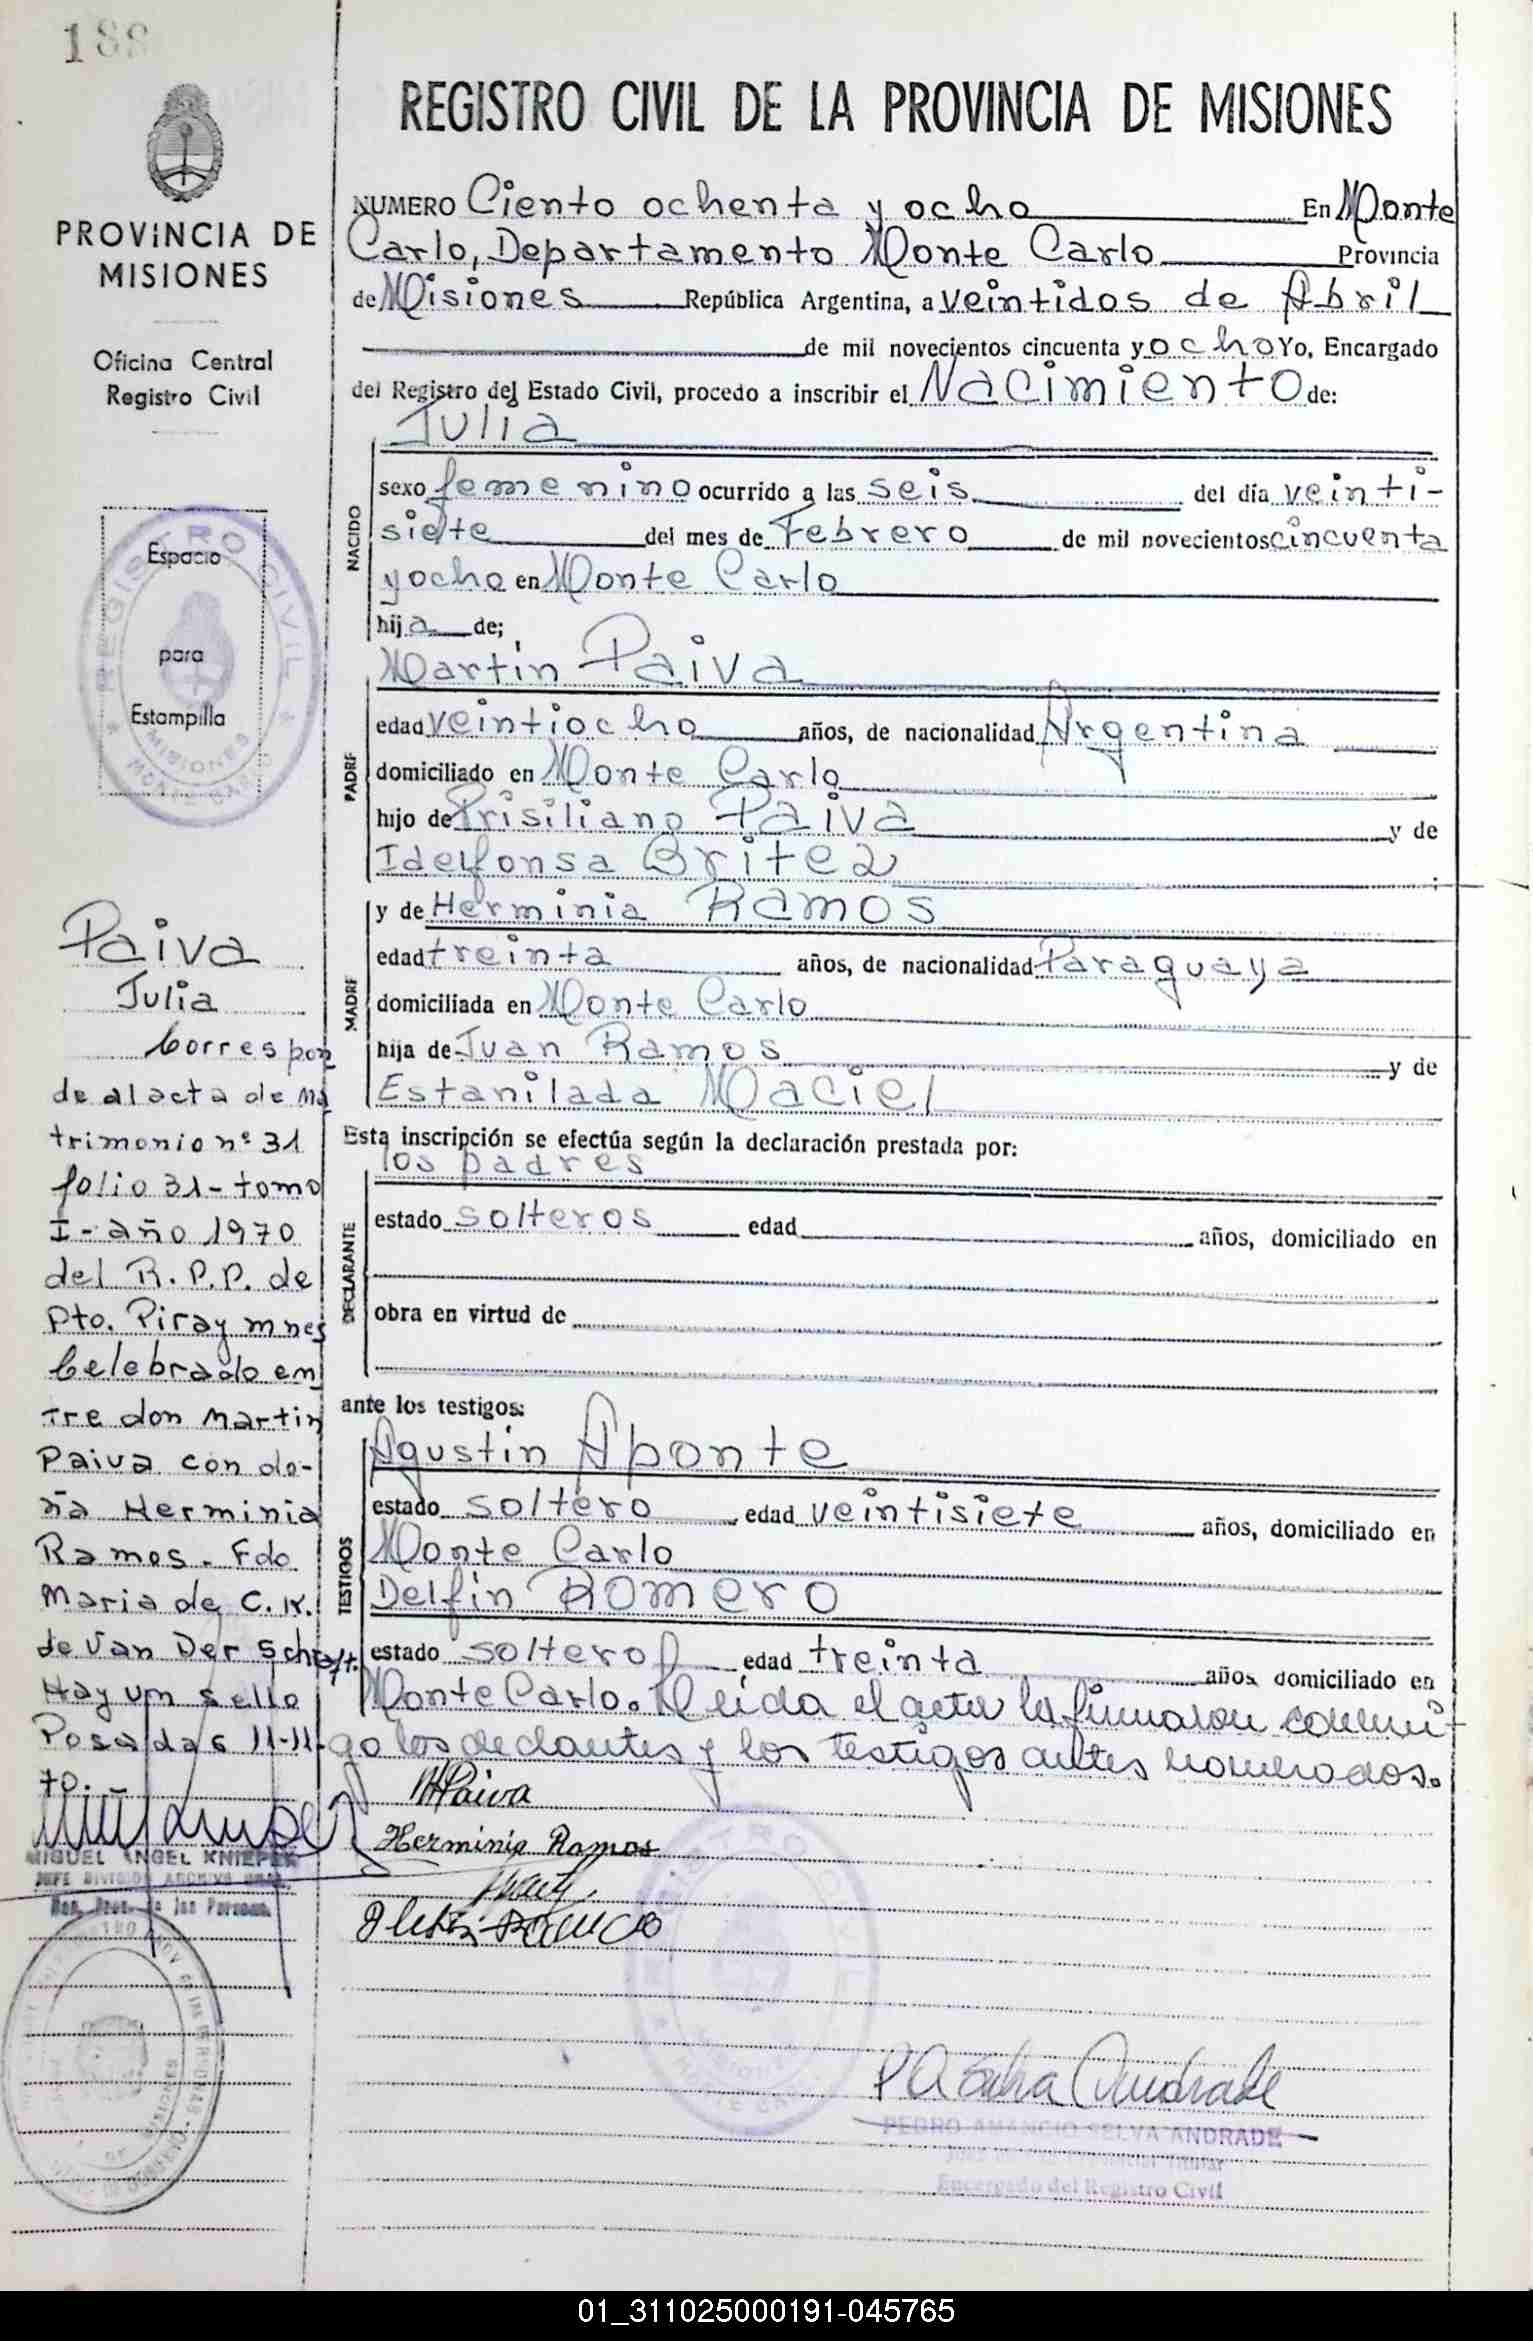 188
REGISTRO CIVIL DE LA PROVINCIA DE MISIONES
PROVINCIA DE
MISIONES
Oficina Central
Registro Civil
Espacio
para
Estampilla
REGISTRO CIVIL
MISIONES
MONTE CARLO
NUMERO Ciento ochenta y ocho En Monte
Carlo, Departamento Monte Carlo Provincia
de Misiones República Argentina, a veintidos de Abril
de mil novecientos cincuenta y ocho Yo, Encargado
del Registro del Estado Civil, procedo a inscribir el Nacimiento de:
NACIDO
Julia
sexo femenino ocurrido a las seis del día veinti-
siete del mes de Febrero de mil novecientos cincuenta
y ocho en Monte Carlo
hija de;
PADRE
Martín Paiva
edad veintiocho años, de nacionalidad Argentina
domiciliado en Monte Carlo
hijo de Prisiliano Paiva y de
Idelfonsa Britez
MADRE
y de Herminia Ramos
edad treinta años, de nacionalidad Paraguaya
domiciliada en Monte Carlo
hija de Juan Ramos y de
Estanilada Maciel
Esta inscripción se efectúa según la declaración prestada por:
DECLARANTE
los padres
estado solteros edad años, domiciliado en
obra en virtud de
ante los testigos:
TESTIGOS
Agustin Aponte
estado soltero edad veintisiete años, domiciliado en
Monte Carlo
Delfin Romero
estado soltero edad treinta años domiciliado en
Monte Carlo. Leida el acta la firmaron conmi-
go los declantes y los testigos antes nombrados.
M Paiva
Herminia Ramos
Paiva
Julia
Correspon
de al acta de Ma
trimonio nº 31
folio 31 - tomo
I - año 1970
del R. P. P. de
Pto. Piray mnes
Celebrado en
tre don Martin
Paiva con do-
ña Herminia
Ramos. Fdo.
Maria de C. K.
de Van Der Schraft.
Hay un sello
Posadas 11-11-
70.-
MIGUEL ANGEL KNIEPER
JEFE DIVISION ARCHIVO GRAL.
REGISTRO CIVIL
MISIONES
MONTE CARLO
P A Selva Andrade
PEDRO AMANCIO SELVA ANDRADE
Encargado del Registro Civil
01_311025000191-045765